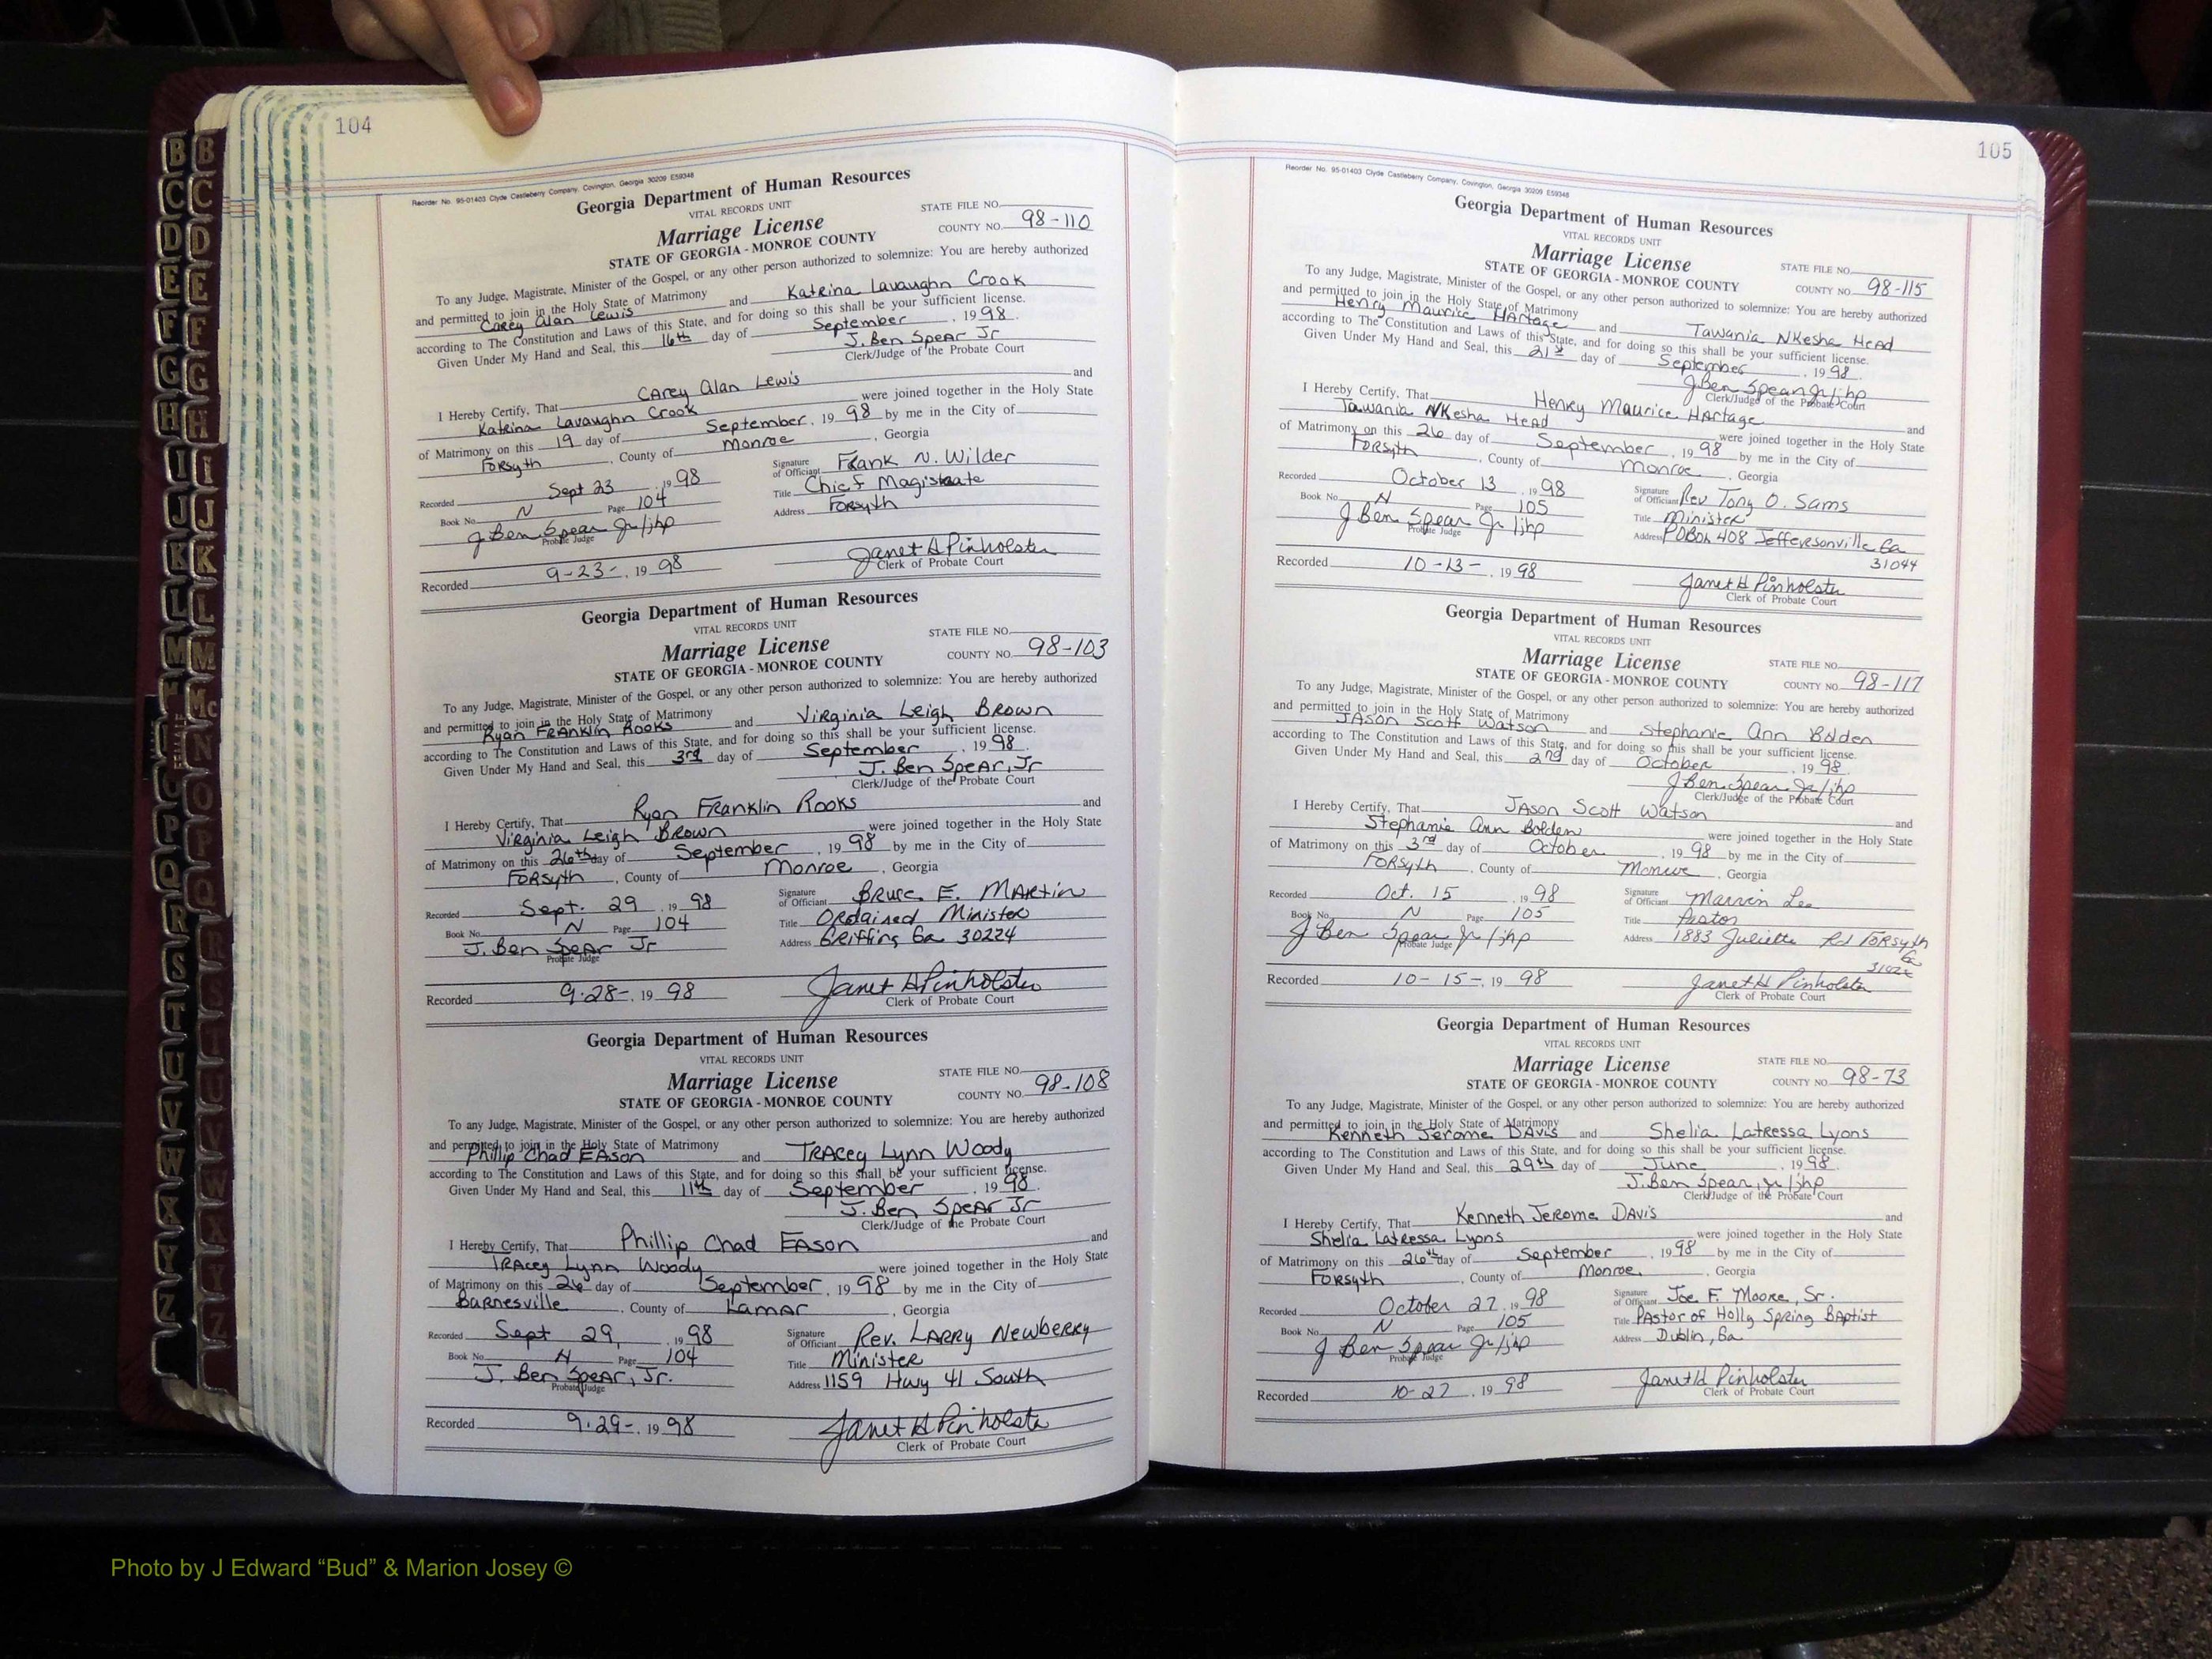 104
Reorder No. 95-01403 Clyde Castleberry Company, Covington, Georgia 30209 E59348
Georgia Department of Human Resources
VITAL RECORDS UNIT
Marriage License
STATE OF GEORGIA - MONROE COUNTY
STATE FILE NO.
COUNTY NO. 98-110
To any Judge, Magistrate, Minister of the Gospel, or any other person authorized to solemnize: You are hereby authorized
and permitted to join in the Holy State of Matrimony
Carey Alan Lewis and Katrina Lavaughn Crook
according to The Constitution and Laws of this State, and for doing so this shall be your sufficient license.
Given Under My Hand and Seal, this 16th day of September, 1998.
J. Ben Spear Jr
Clerk/Judge of the Probate Court
I Hereby Certify, That Carey Alan Lewis and
Katrina Lavaughn Crook were joined together in the Holy State
of Matrimony on this 19 day of September, 1998 by me in the City of
Forsyth, County of Monroe, Georgia
Recorded Sept 23, 1998
Signature of Officiant Frank N. Wilder
Book No. N Page 104
Title Chief Magistrate
J Ben Spear Jr/jhp
Probate Judge
Address Forsyth
Recorded 9-23-, 1998
Janet H Pinholster
Clerk of Probate Court
Georgia Department of Human Resources
VITAL RECORDS UNIT
Marriage License
STATE OF GEORGIA - MONROE COUNTY
STATE FILE NO.
COUNTY NO. 98-103
To any Judge, Magistrate, Minister of the Gospel, or any other person authorized to solemnize: You are hereby authorized
and permitted to join in the Holy State of Matrimony
Ryan Franklin Rooks and Virginia Leigh Brown
according to The Constitution and Laws of this State, and for doing so this shall be your sufficient license.
Given Under My Hand and Seal, this 3rd day of September, 1998.
J. Ben Spear, Jr
Clerk/Judge of the Probate Court
I Hereby Certify, That Ryan Franklin Rooks and
Virginia Leigh Brown were joined together in the Holy State
of Matrimony on this 26th day of September, 1998 by me in the City of
Forsyth, County of Monroe, Georgia
Recorded Sept. 29, 1998
Signature of Officiant Bruce E. Martin
Book No. N Page 104
Title Ordained Minister
J. Ben Spear Jr
Probate Judge
Address Griffing Ga 30224
Recorded 9-28-, 1998
Janet H Pinholster
Clerk of Probate Court
Georgia Department of Human Resources
VITAL RECORDS UNIT
Marriage License
STATE OF GEORGIA - MONROE COUNTY
STATE FILE NO.
COUNTY NO. 98-108
To any Judge, Magistrate, Minister of the Gospel, or any other person authorized to solemnize: You are hereby authorized
and permitted to join in the Holy State of Matrimony
Phillip Chad Eason and Tracey Lynn Woody
according to The Constitution and Laws of this State, and for doing so this shall be your sufficient license.
Given Under My Hand and Seal, this 11th day of September, 1998.
J. Ben Spear Jr
Clerk/Judge of the Probate Court
I Hereby Certify, That Phillip Chad Eason and
Tracey Lynn Woody were joined together in the Holy State
of Matrimony on this 26 day of September, 1998 by me in the City of
Barnesville, County of Lamar, Georgia
Recorded Sept 29, 1998
Signature of Officiant Rev. Larry Newberry
Book No. N Page 104
Title Minister
J. Ben Spear, Jr.
Probate Judge
Address 1159 Hwy 41 South
Recorded 9-29-, 1998
Janet H Pinholster
Clerk of Probate Court
105
Reorder No. 95-01403 Clyde Castleberry Company, Covington, Georgia 30209 E59348
Georgia Department of Human Resources
VITAL RECORDS UNIT
Marriage License
STATE OF GEORGIA - MONROE COUNTY
STATE FILE NO.
COUNTY NO. 98-115
To any Judge, Magistrate, Minister of the Gospel, or any other person authorized to solemnize: You are hereby authorized
and permitted to join in the Holy State of Matrimony
Henry Maurice Hartage and Tawania NKesha Head
according to The Constitution and Laws of this State, and for doing so this shall be your sufficient license.
Given Under My Hand and Seal, this 21st day of September, 1998.
J Ben Spear Jr/jhp
Clerk/Judge of the Probate Court
I Hereby Certify, That Henry Maurice Hartage and
Tawania NKesha Head were joined together in the Holy State
of Matrimony on this 26 day of September, 1998 by me in the City of
Forsyth, County of Monroe, Georgia
Recorded October 13, 1998
Signature of Officiant Rev Tony O. Sams
Book No. N Page 105
Title Minister
J Ben Spear Jr/jhp
Probate Judge
Address POBox 408 Jeffersonville Ga
31044
Recorded 10-13-, 1998
Janet H Pinholster
Clerk of Probate Court
Georgia Department of Human Resources
VITAL RECORDS UNIT
Marriage License
STATE OF GEORGIA - MONROE COUNTY
STATE FILE NO.
COUNTY NO. 98-117
To any Judge, Magistrate, Minister of the Gospel, or any other person authorized to solemnize: You are hereby authorized
and permitted to join in the Holy State of Matrimony
Jason Scott Watson and Stephanie Ann Bolden
according to The Constitution and Laws of this State, and for doing so this shall be your sufficient license.
Given Under My Hand and Seal, this 2nd day of October, 1998.
J Ben Spear Jr/jhp
Clerk/Judge of the Probate Court
I Hereby Certify, That Jason Scott Watson and
Stephanie Ann Bolden were joined together in the Holy State
of Matrimony on this 3rd day of October, 1998 by me in the City of
Forsyth, County of Monroe, Georgia
Recorded Oct. 15, 1998
Signature of Officiant Marvin Lee
Book No. N Page 105
Title Pastor
J Ben Spear Jr/jhp
Probate Judge
Address 1883 Juliette Rd Forsyth
Ga
Recorded 10-15-, 1998
Janet H Pinholster
Clerk of Probate Court
Georgia Department of Human Resources
VITAL RECORDS UNIT
Marriage License
STATE OF GEORGIA - MONROE COUNTY
STATE FILE NO.
COUNTY NO. 98-73
To any Judge, Magistrate, Minister of the Gospel, or any other person authorized to solemnize: You are hereby authorized
and permitted to join in the Holy State of Matrimony
Kenneth Jerome Davis and Shelia Latressa Lyons
according to The Constitution and Laws of this State, and for doing so this shall be your sufficient license.
Given Under My Hand and Seal, this 29th day of June, 1998.
J. Ben Spear, Jr/jhp
Clerk/Judge of the Probate Court
I Hereby Certify, That Kenneth Jerome Davis and
Shelia Latressa Lyons were joined together in the Holy State
of Matrimony on this 26th day of September, 1998 by me in the City of
Forsyth, County of Monroe, Georgia
Recorded October 27, 1998
Signature of Officiant Joe F. Moore, Sr.
Book No. N Page 105
Title Pastor of Holly Spring Baptist
J Ben Spear Jr/jhp
Probate Judge
Address Dublin, Ga
Recorded 10-27, 1998
Janet H Pinholster
Clerk of Probate Court
Photo by J Edward “Bud” & Marion Josey ©